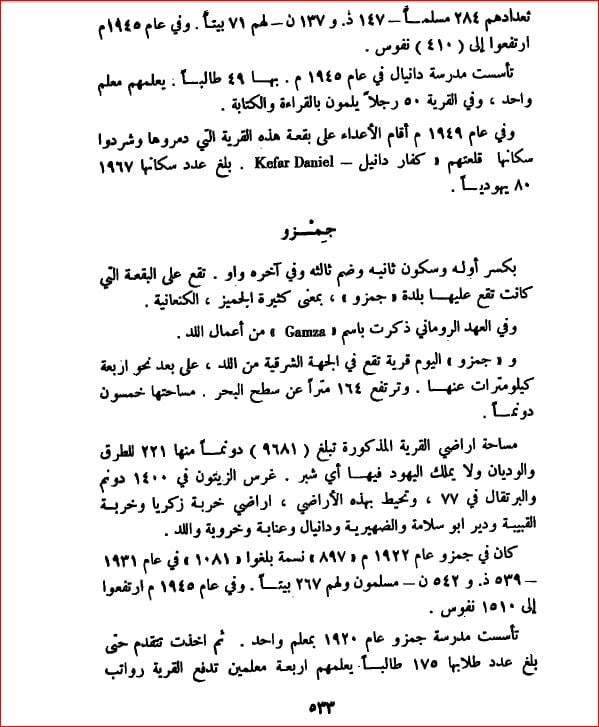 تعدادهم ٢٨٤ مسلمـاً ــ ١٤٧ ذ. و ١٣٧ ن ــ لهم ٧١ بيتـاً . وفي عام ١٩٤٥م
ارتفعوا إلى ( ٤١٠ ) نفوس .
تأسست مدرسة دانيال في عام ١٩٤٥ م . بهـا ٤٩ طالبـاً . يعلمهم معلم
واحد ، وفي القرية ٥٠ رجلاً يلمون بالقراءة والكتابة .
وفي عام ١٩٤٩ م أقام الأعداء على بقعة هذه القرية التي دمروها وشردوا
سكانها قلعتهم « كفار دانيل ــ Kefar Daniel . بلغ عدد سكانها ١٩٦٧
٨٠ يهوديـاً .
جِمْـزو
بكسر أوله وسكون ثانيه وضم ثالثه وفي آخره واو . تقع على البقعة التي
كانت تقع عليهـا بلدة « جمزو » ، بمعنى كثيرة الجميز ، الكنعانية .
وفي العهد الروماني ذكرت باسم « Gamza » من أعمال اللد .
و « جمزو » اليوم قرية تقع في الجهة الشرقية من اللد ، على بعد نحو اربعة
كيلومترات عنهـا . وترتفع ١٦٤ متراً عن سطح البحر . مساحتها خمسون
دونمـاً .
مساحة اراضي القرية المذكورة تبلغ ( ٩٦٨١ ) دونمـاً منها ٢٢١ للطرق
والوديان ولا يملك اليهود فيهـا أي شبر . غرس الزيتون في ١٤٠٠ دونم
والبرتقال في ٧٧ ، وتحيط بهذه الأراضي ، اراضي خربة زكريا وخربـة
القبيبة ودير ابو سلامة والضهيرية ودانيال وعنابة وخروبة واللد .
كان في جمزو عام ١٩٢٢ م « ٨٩٧ » نسمة بلغوا « ١٠٨١ » في عام ١٩٣١
ــ ٥٣٩ ذ. و ٥٤٢ ن ــ مسلمون ولهم ٢٦٧ بيتـاً . وفي عام ١٩٤٥ م ارتفعوا
إلى ١٥١٠ نفوس .
تأسست مدرسة جمزو عام ١٩٢٠ بمعلم واحد . ثم اخذت تتقدم حتى
بلغ عدد طلابها ١٧٥ طالبـاً يعلمهم اربعـة معلمين تدفع القرية رواتب
٥٣٣